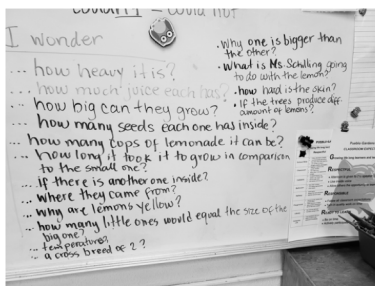 couldn't = could not
I wonder
... how heavy it is?
... how much juice each has?
... how big can they grow?
... how many seeds each one has inside?
... how many cups of lemonade it can be?
... how long it took it to grow in comparison
to the small one?
... if there is another one inside?
... where they came from?
... why are lemons yellow?
... how many little ones would equal the size of the
big one?
... temperature?
... a cross breed of 2?
• Why one is bigger than
the other?
• What is Ms. Schilling going
to do with the lemon?
• how hard is the skin?
• If the trees produce diff.
amount of lemons?